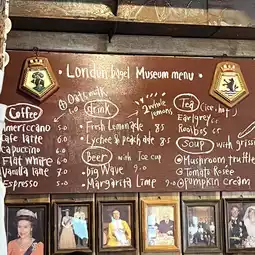 London bagel Museum menu
Coffee
Americano 5.0
Cafe latte
Cappuccino
Flat white 6.0
Vanilla latte 7.0
Espresso 5.0
Oat milk
+ 1.0
drink
2 whole lemons
Fresh Lemonade 8.5
Lychee & peach ade 8.5
Beer with Ice cup
big Wave 9.0
Margarita Lime 9.0
Tea (ice, hot)
Earlgrey
Rooibos
Soup with
@Mushroom truffle
@Tomato Rosée
@Pumpkin cream